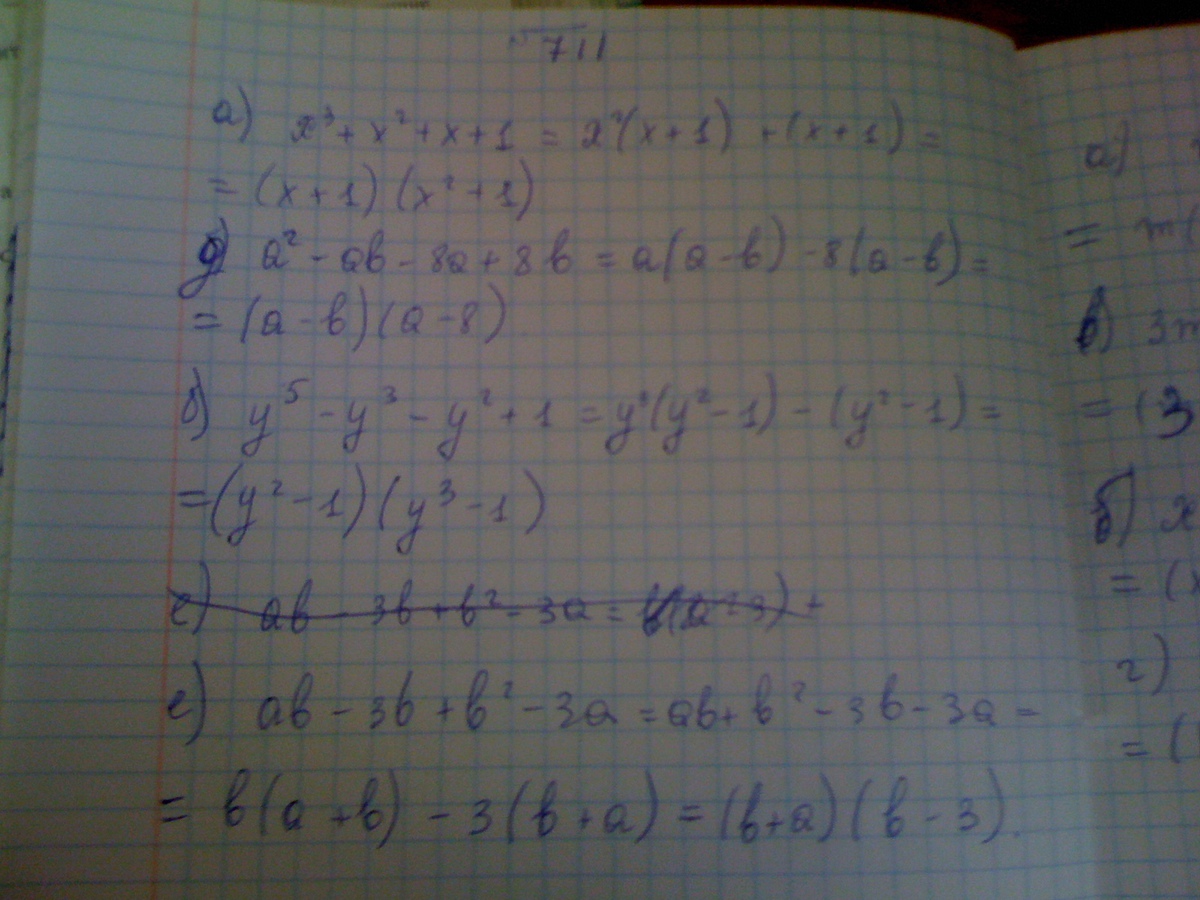 711
а) x³ + x² + x + 1 = x²(x + 1) + (x + 1) =
= (x + 1) (x² + 1)
д) a² - ab - 8a + 8b = a(a - b) - 8(a - b) =
= (a - b)(a - 8)
б) y⁵ - y³ - y² + 1 = y³(y² - 1) - (y² - 1) =
= (y² - 1)(y³ - 1)
е) ab - 3b + b² - 3a =
е) ab - 3b + b² - 3a = ab + b² - 3b - 3a =
= b(a + b) - 3(b + a) = (b + a)(b - 3).
а)
= m(
в) 3m
= (3
б) x
= (x
г)
= (